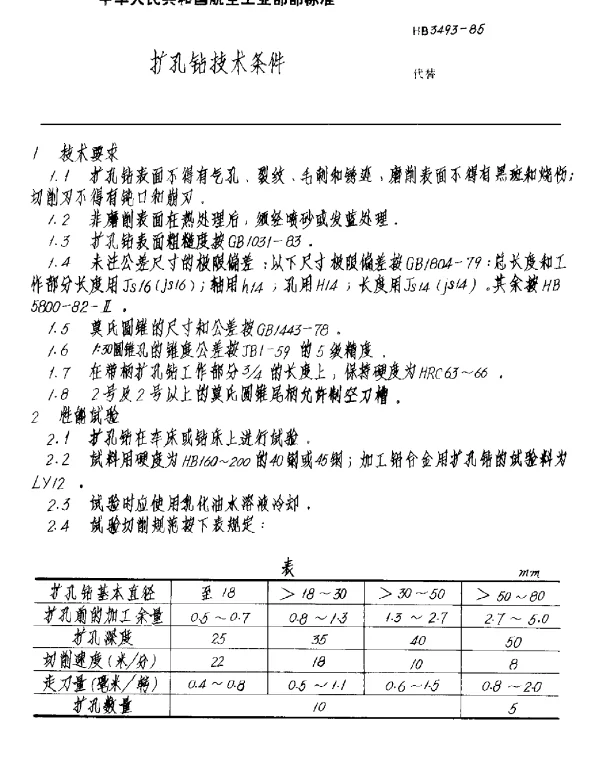 中华人民共和国航空工业部部标准
HB3493-85
扩孔钻技术条件
代替
1 技术要求
1.1 扩孔钻表面不得有气孔、裂纹、毛刺和锈迹,磨削表面不得有黑斑和烧伤;
切削刃不得有钝口和崩刃.
1.2 非磨削表面在热处理后,须经喷砂或发蓝处理.
1.3 扩孔钻表面粗糙度按GB1031-83.
1.4 未注公差尺寸的极限偏差:以下尺寸极限偏差按GB1804-79:总长度和工
作部分长度用Js16(js16);轴用h14;孔用H14;长度用Js14(js14).其余按HB
5800-82-Ⅱ.
1.5 莫氏圆锥的尺寸和公差按GB1443-78.
1.6 1:30圆锥孔的锥度公差按JB1-59 的5级精度.
1.7 在带柄扩孔钻工作部分3/4的长度上,保持硬度为HRC63~66.
1.8 2号及2号以上的莫氏圆锥尾柄允许制空刀槽.
2 性能试验
2.1 扩孔钻在车床或钻床上进行试验.
2.2 试料用硬度为HB160~200的40钢或45钢;加工铝合金用扩孔钻的试验料为
LY12.
2.3 试验时应使用乳化油水溶液冷却.
2.4 试验切削规范按下表规定:
表 mm
扩孔钻基本直径 至18 >18~30 >30~50 >50~80
扩孔前的加工余量 0.5~0.7 0.8~1.3 1.3~2.7 2.7~5.0
扩孔深度 25 35 40 50
切削速度(米/分) 22 18 10 8
走刀量(毫米/转) 0.4~0.8 0.5~1.1 0.6~1.5 0.8~2.0
扩孔数量 10 5